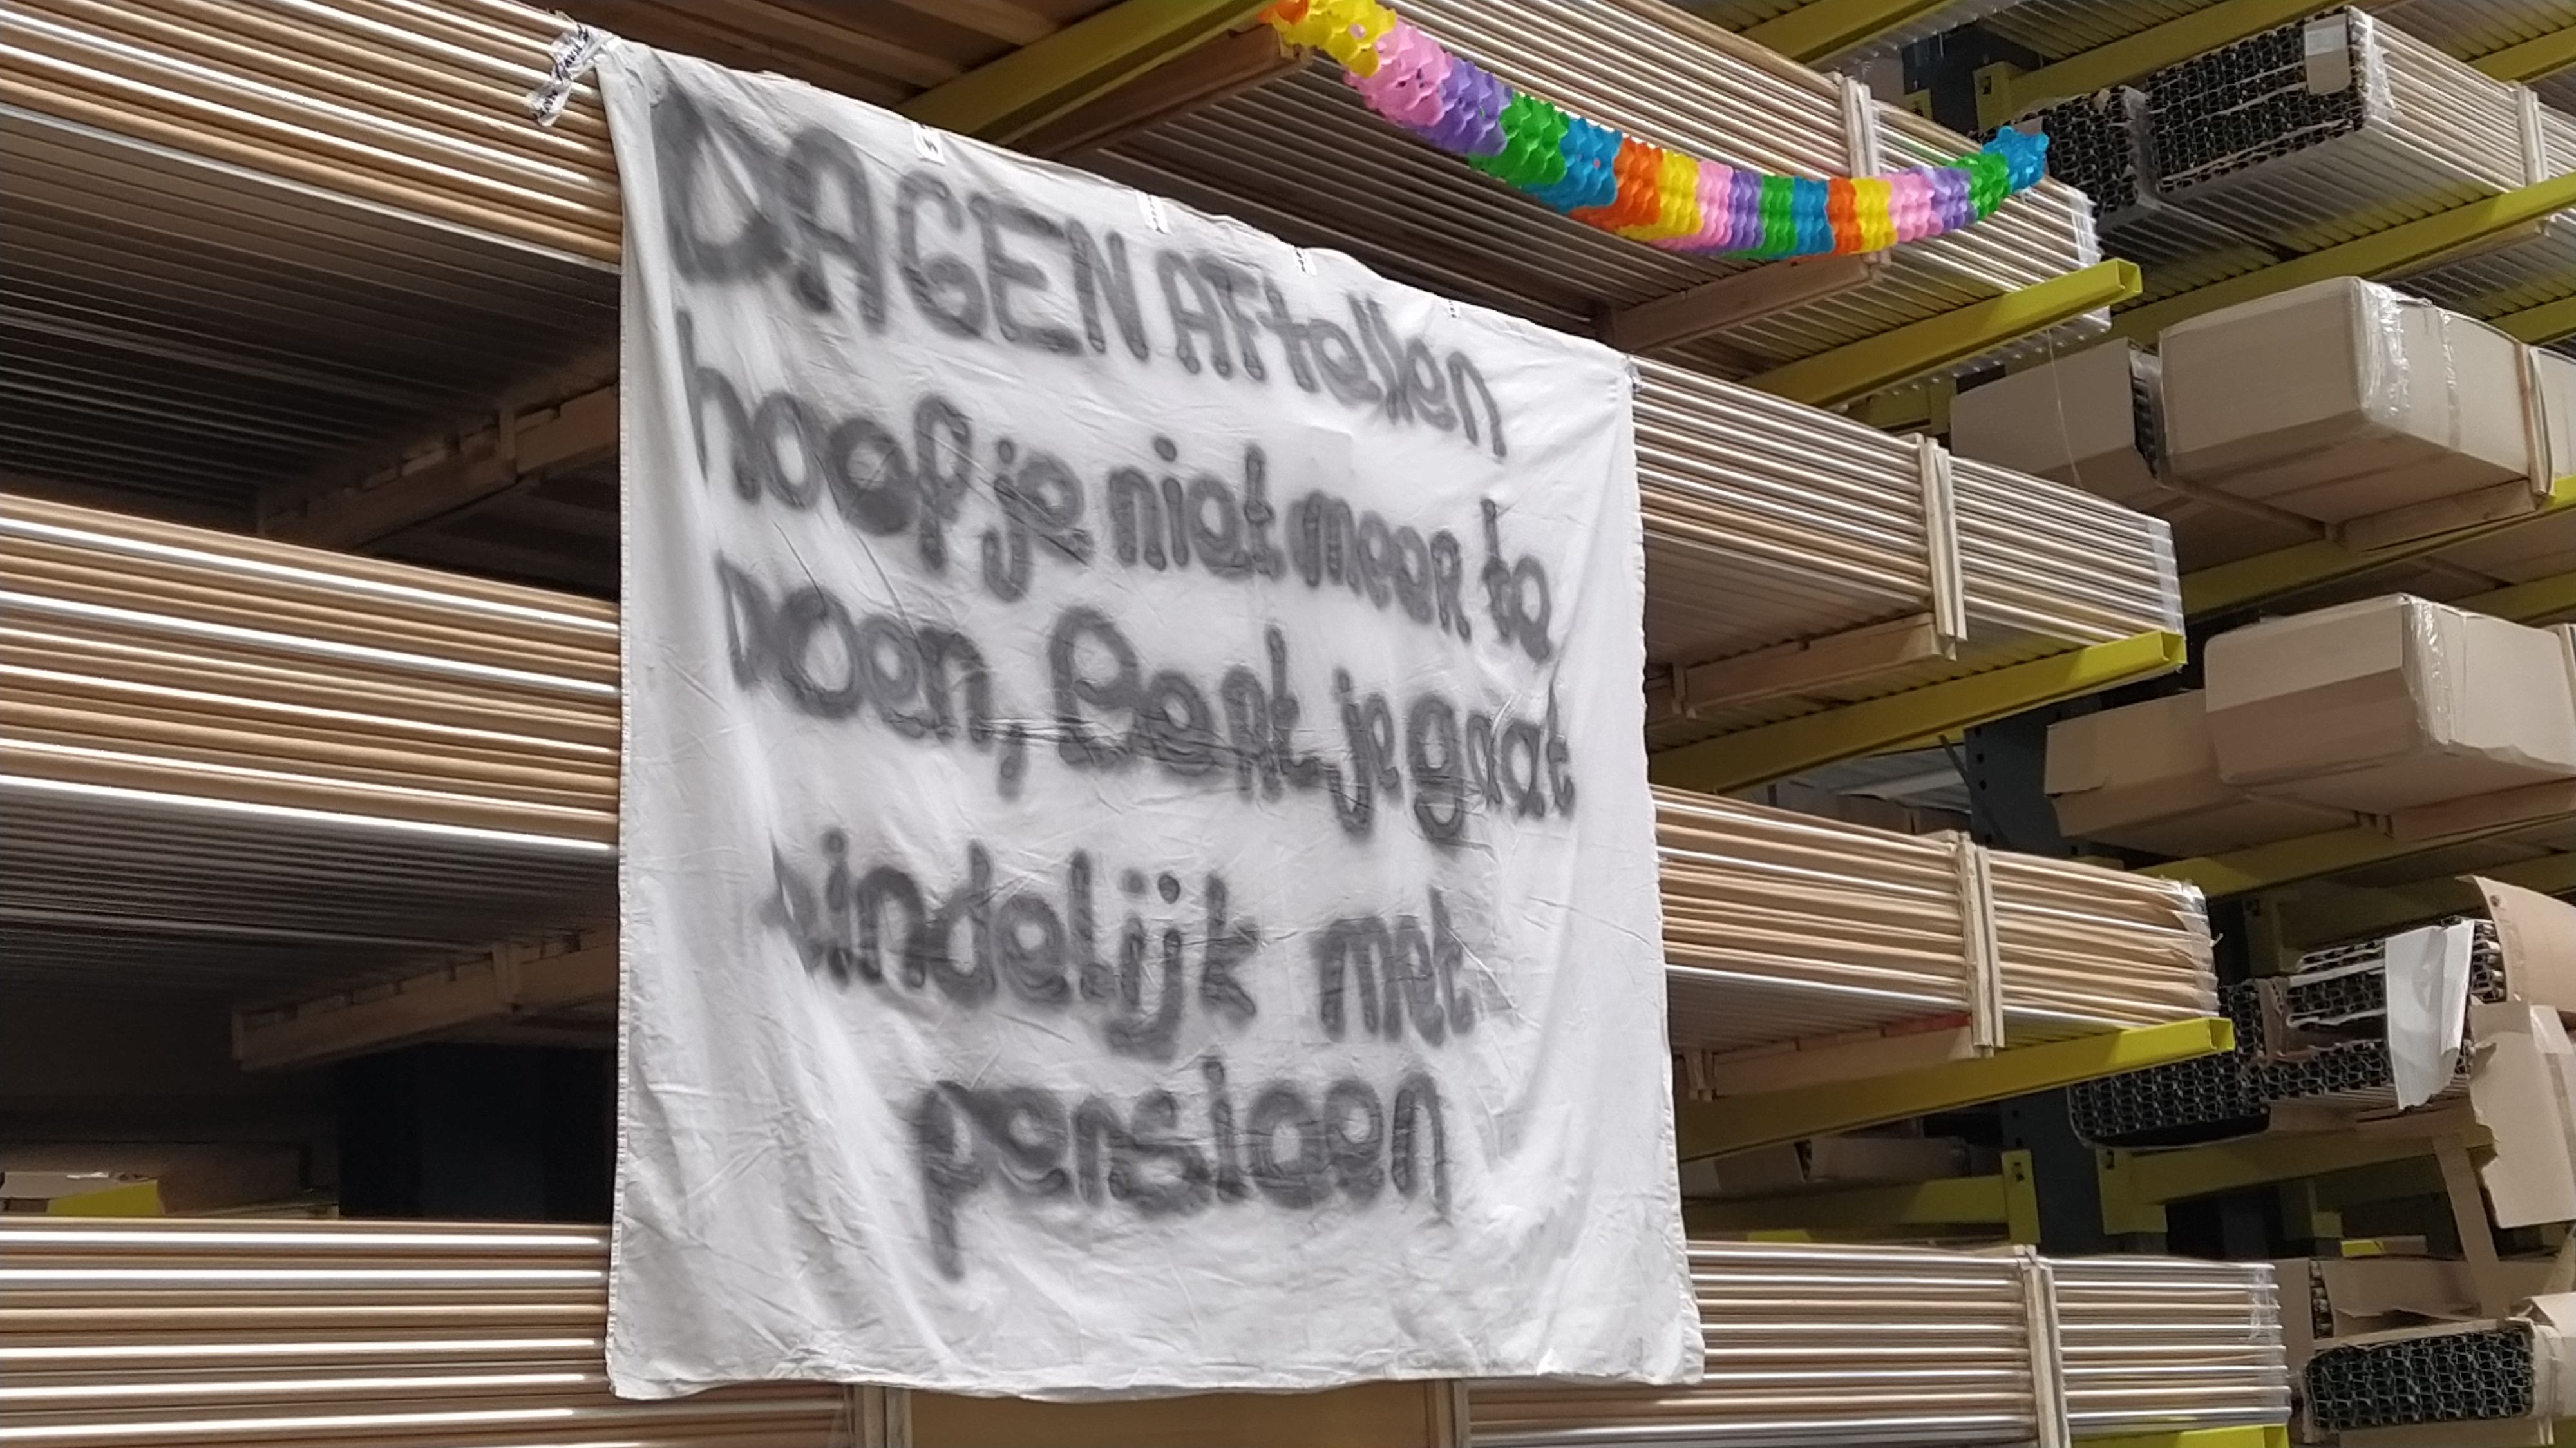 DAGEN AFtellen
hoef je niet meer te
Doen, Bert je gaat
eindelijk met
pensioen